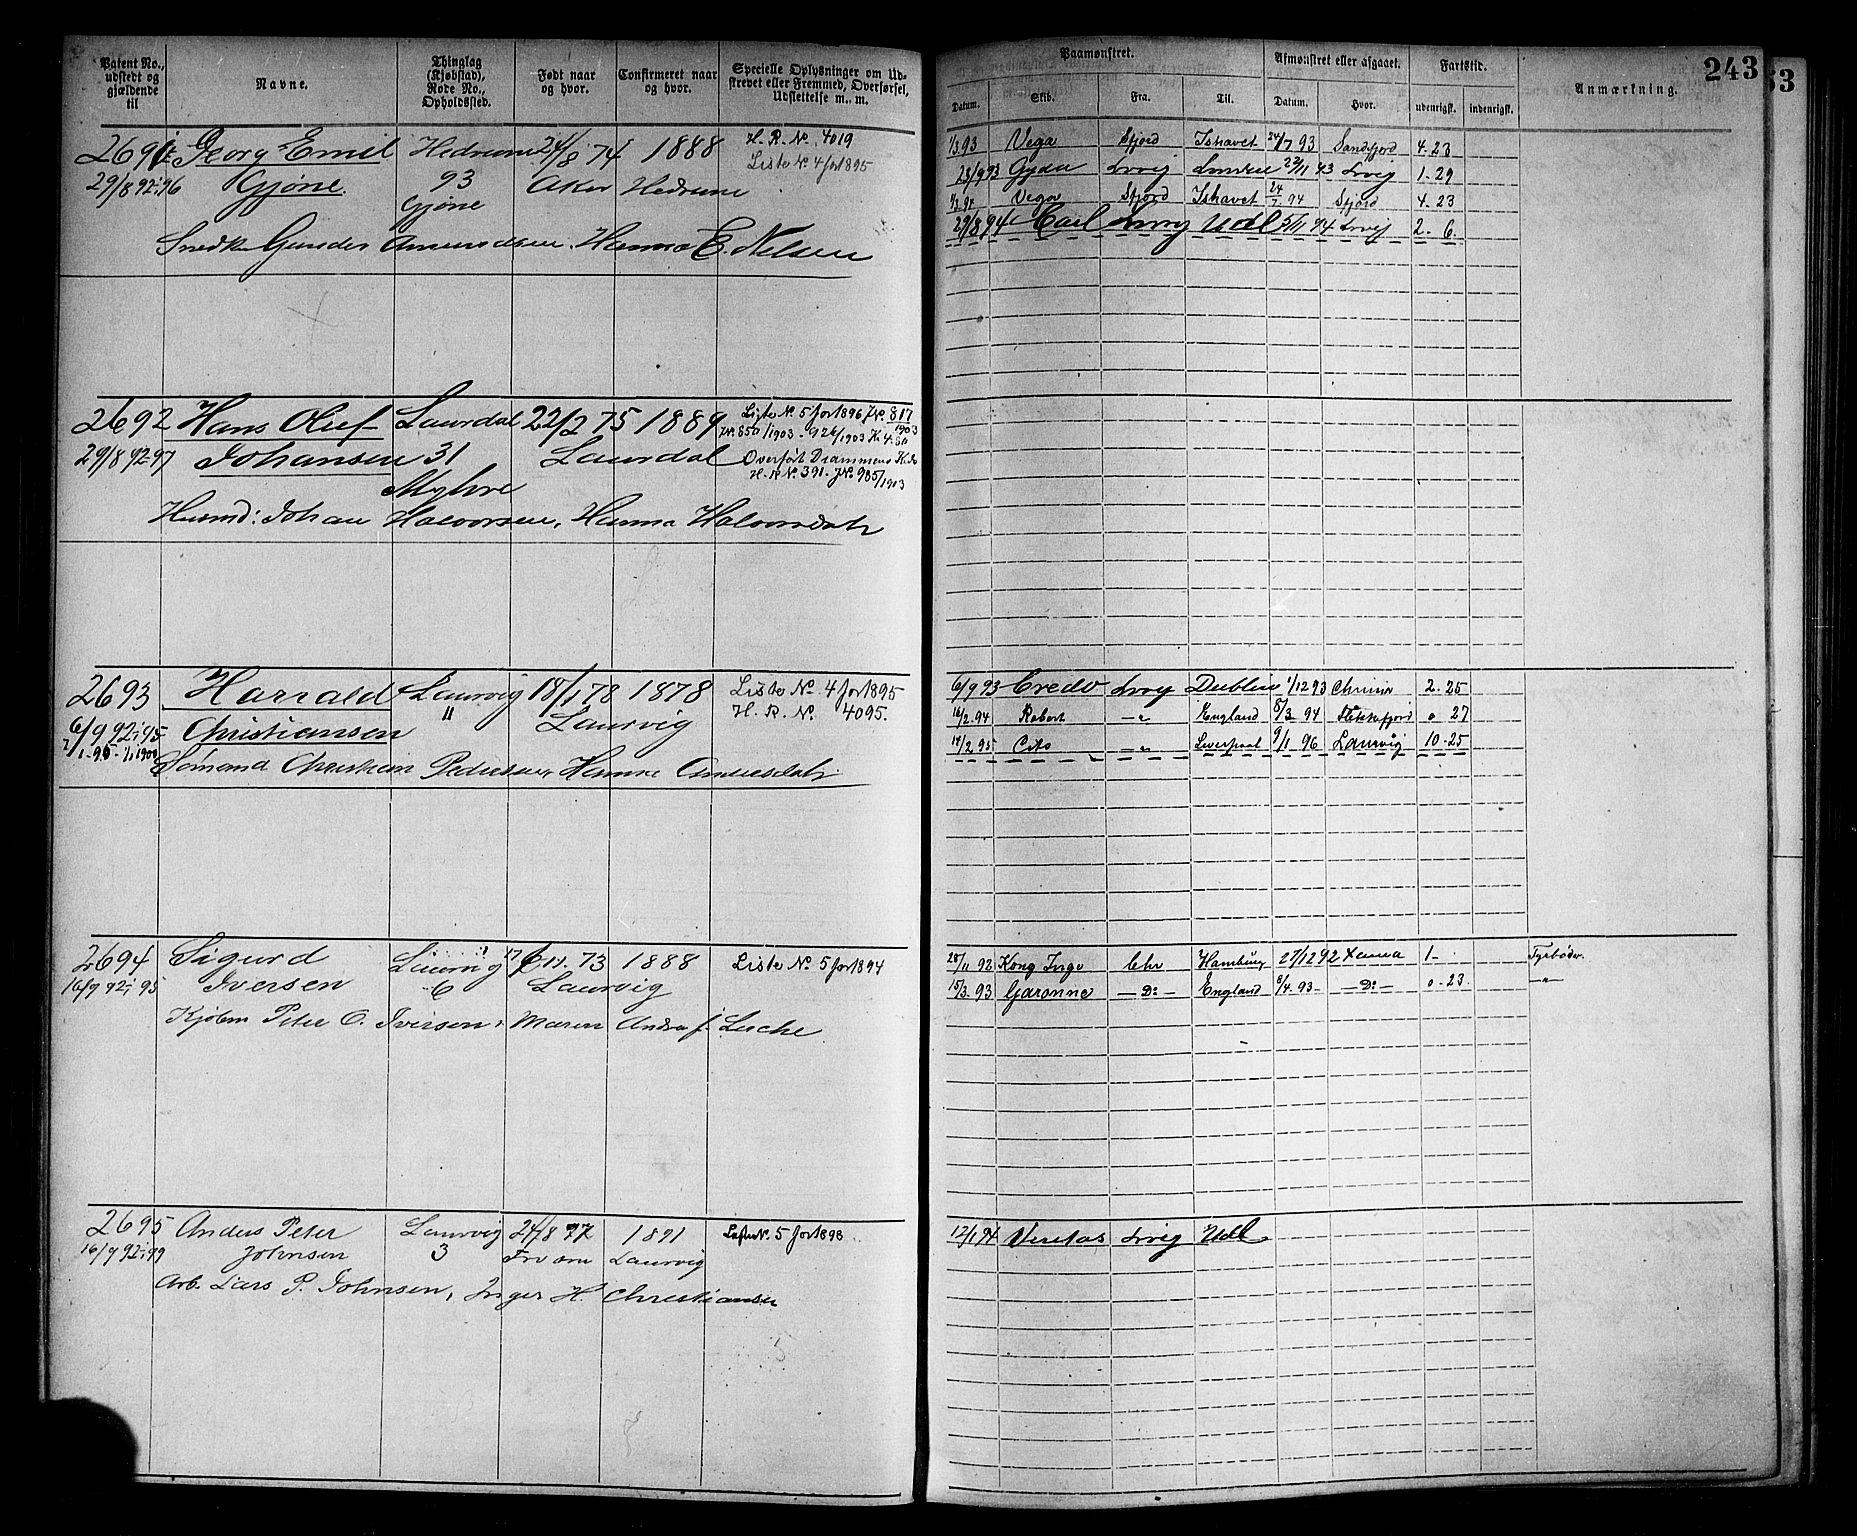 Patent No., udstedt og gjældende til
Navne.
Thinglag (Kjøbstad), Rode No., Opholdssted.
Født naar og hvor.
Confirmeret naar og hvor.
Specielle Oplysninger om Udstrevet eller Fremmed, Overførsel, Udslettelse m. m.
Paamønstret.
Afmønstret eller afgaaet.
Fartstid.
Anmærkning.
243
53
Datum. Skib. Fra. Til. Datum. Hvor. udenrigsk. indenrigsk.
2691 Georg Emil Hedrum 24/8 74 1888 H. R. No. 4019
Liste No 4 for 1895
29/8 92-96 Gjøne 93 Aker Hedrum
Gjøne
Snedk Gunder Amundsen, Hanna E. Nelsen
1/3 93 Vega Sfjord Ishavet 24/7 93 Sandfjord 4-23
23/9 93 Gyda Lvvig 22/11 93 Lvvig 1-29
1/3 94 Vega Sfjord Ishavet 24/7 94 Sfjord 4-23
29/8 94 Carl Lvvig Udl 5/11 94 Lvvig 2-6
2692 Hans Oluf Laurdal 22/2 75 1889 Liste No. 5 for 1896 J.No. 817/1903
J.No. 850/1903 - 926/1903
29/8 92-97 Johansen 31 Laurdal Overført Drammens
Myhre H. R No. 391. J.No 985/1903
Husmd: Johan Halvorsen, Hanna Halvorsdatr
2693 Harrald Laurvig 18/1 78 1878 Liste No. 4 for 1895
11 Laurvig H. R. No. 4095.
6/9 92-95 Christiansen
1/1-95-1/1 1900
Sømand Christian Pedersen, Hanna Andersdatr
6/9 93 Credo Lvvig Dublin 1/12 93 2-25
16/2-94 Robert -"- England 8/3 94 Flekkefjord 0 27
14/2 95 Cito -"- Liverpool 9/1 96 Laurvig 10-25
2694 Sigurd Laurvig 73 1888 Liste No. 5 for 1894
16/9 92-95 Iversen 6 Laurvig
Kjøbm Peter O. Iversen, Maren Andrea f. Lesche
28/11 92 Kong Inge Chr Hamburg 27/12 92 1- Fyrbøder.
15/3 93 Garonne -Do- England 6/4 93 -Do- 0-23 -"-
2695 Anders Peter Laurvig 24/8 77 1891 Liste No. 5 for 1898
16/9 92-99 Johnsen 3 Laurvig
Arb. Lars P. Johnsen, Inger H. Christiansen
12/1 94 Veritas Lvvig Udl